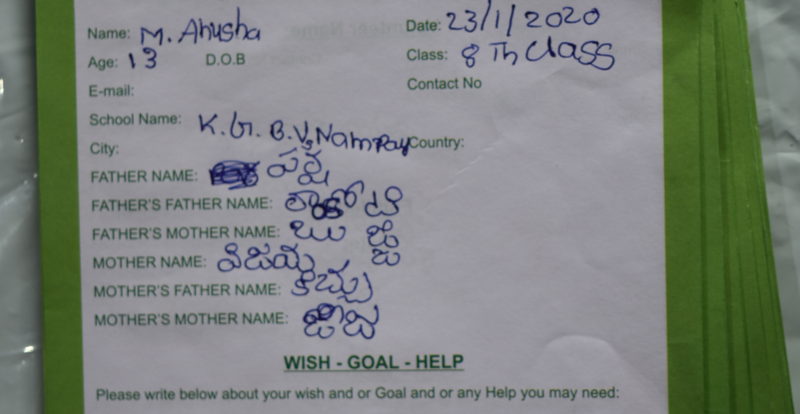 Name: M. Anusha Date: 23/1/2020
Age: 13 D.O.B Class: 8 Th class
E-mail: Contact No
School Name: K.G.B.V, Nampay
City: Country:
FATHER NAME:
FATHER'S FATHER NAME:
FATHER'S MOTHER NAME:
MOTHER NAME: విజయ
MOTHER'S FATHER NAME:
MOTHER'S MOTHER NAME:
WISH - GOAL - HELP
Please write below about your wish and or Goal and or any Help you may need: